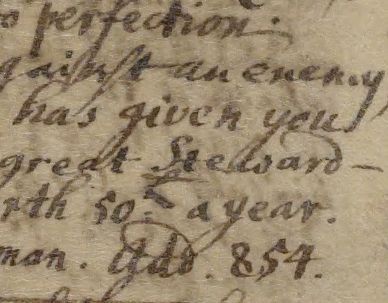 o perfection.
gainst an enemy
has given you
great Steward-
rth 50.£ a year.
man. Add. 854.